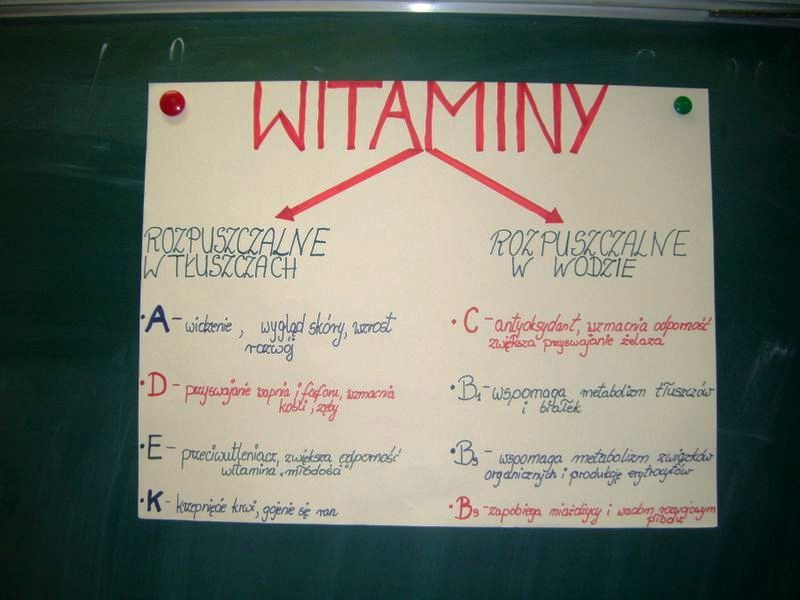 WITAMINY
ROZPUSZCZALNE
W TŁUSZCZACH
• A - widzenie, wygląd skóry, wzrost
rozwój
• D - przyswajanie wapnia i fosforu, wzmacnia
kości, zęby
• E - przeciwutleniacz, zwiększa odporność
witamina "młodości"
• K - krzepnięcie krwi, gojenie się ran
ROZPUSZCZALNE
W WODZIE
• C - antyoksydant, wzmacnia odporność
zwiększa przyswajanie żelaza
• B1 - wspomaga metabolizm tłuszczów
i białek
• B5 - wspomaga metabolizm związków
organicznych i produkcję erytrocytów
• B9 - zapobiega miażdżycy i wadom rozwojowym
płodu